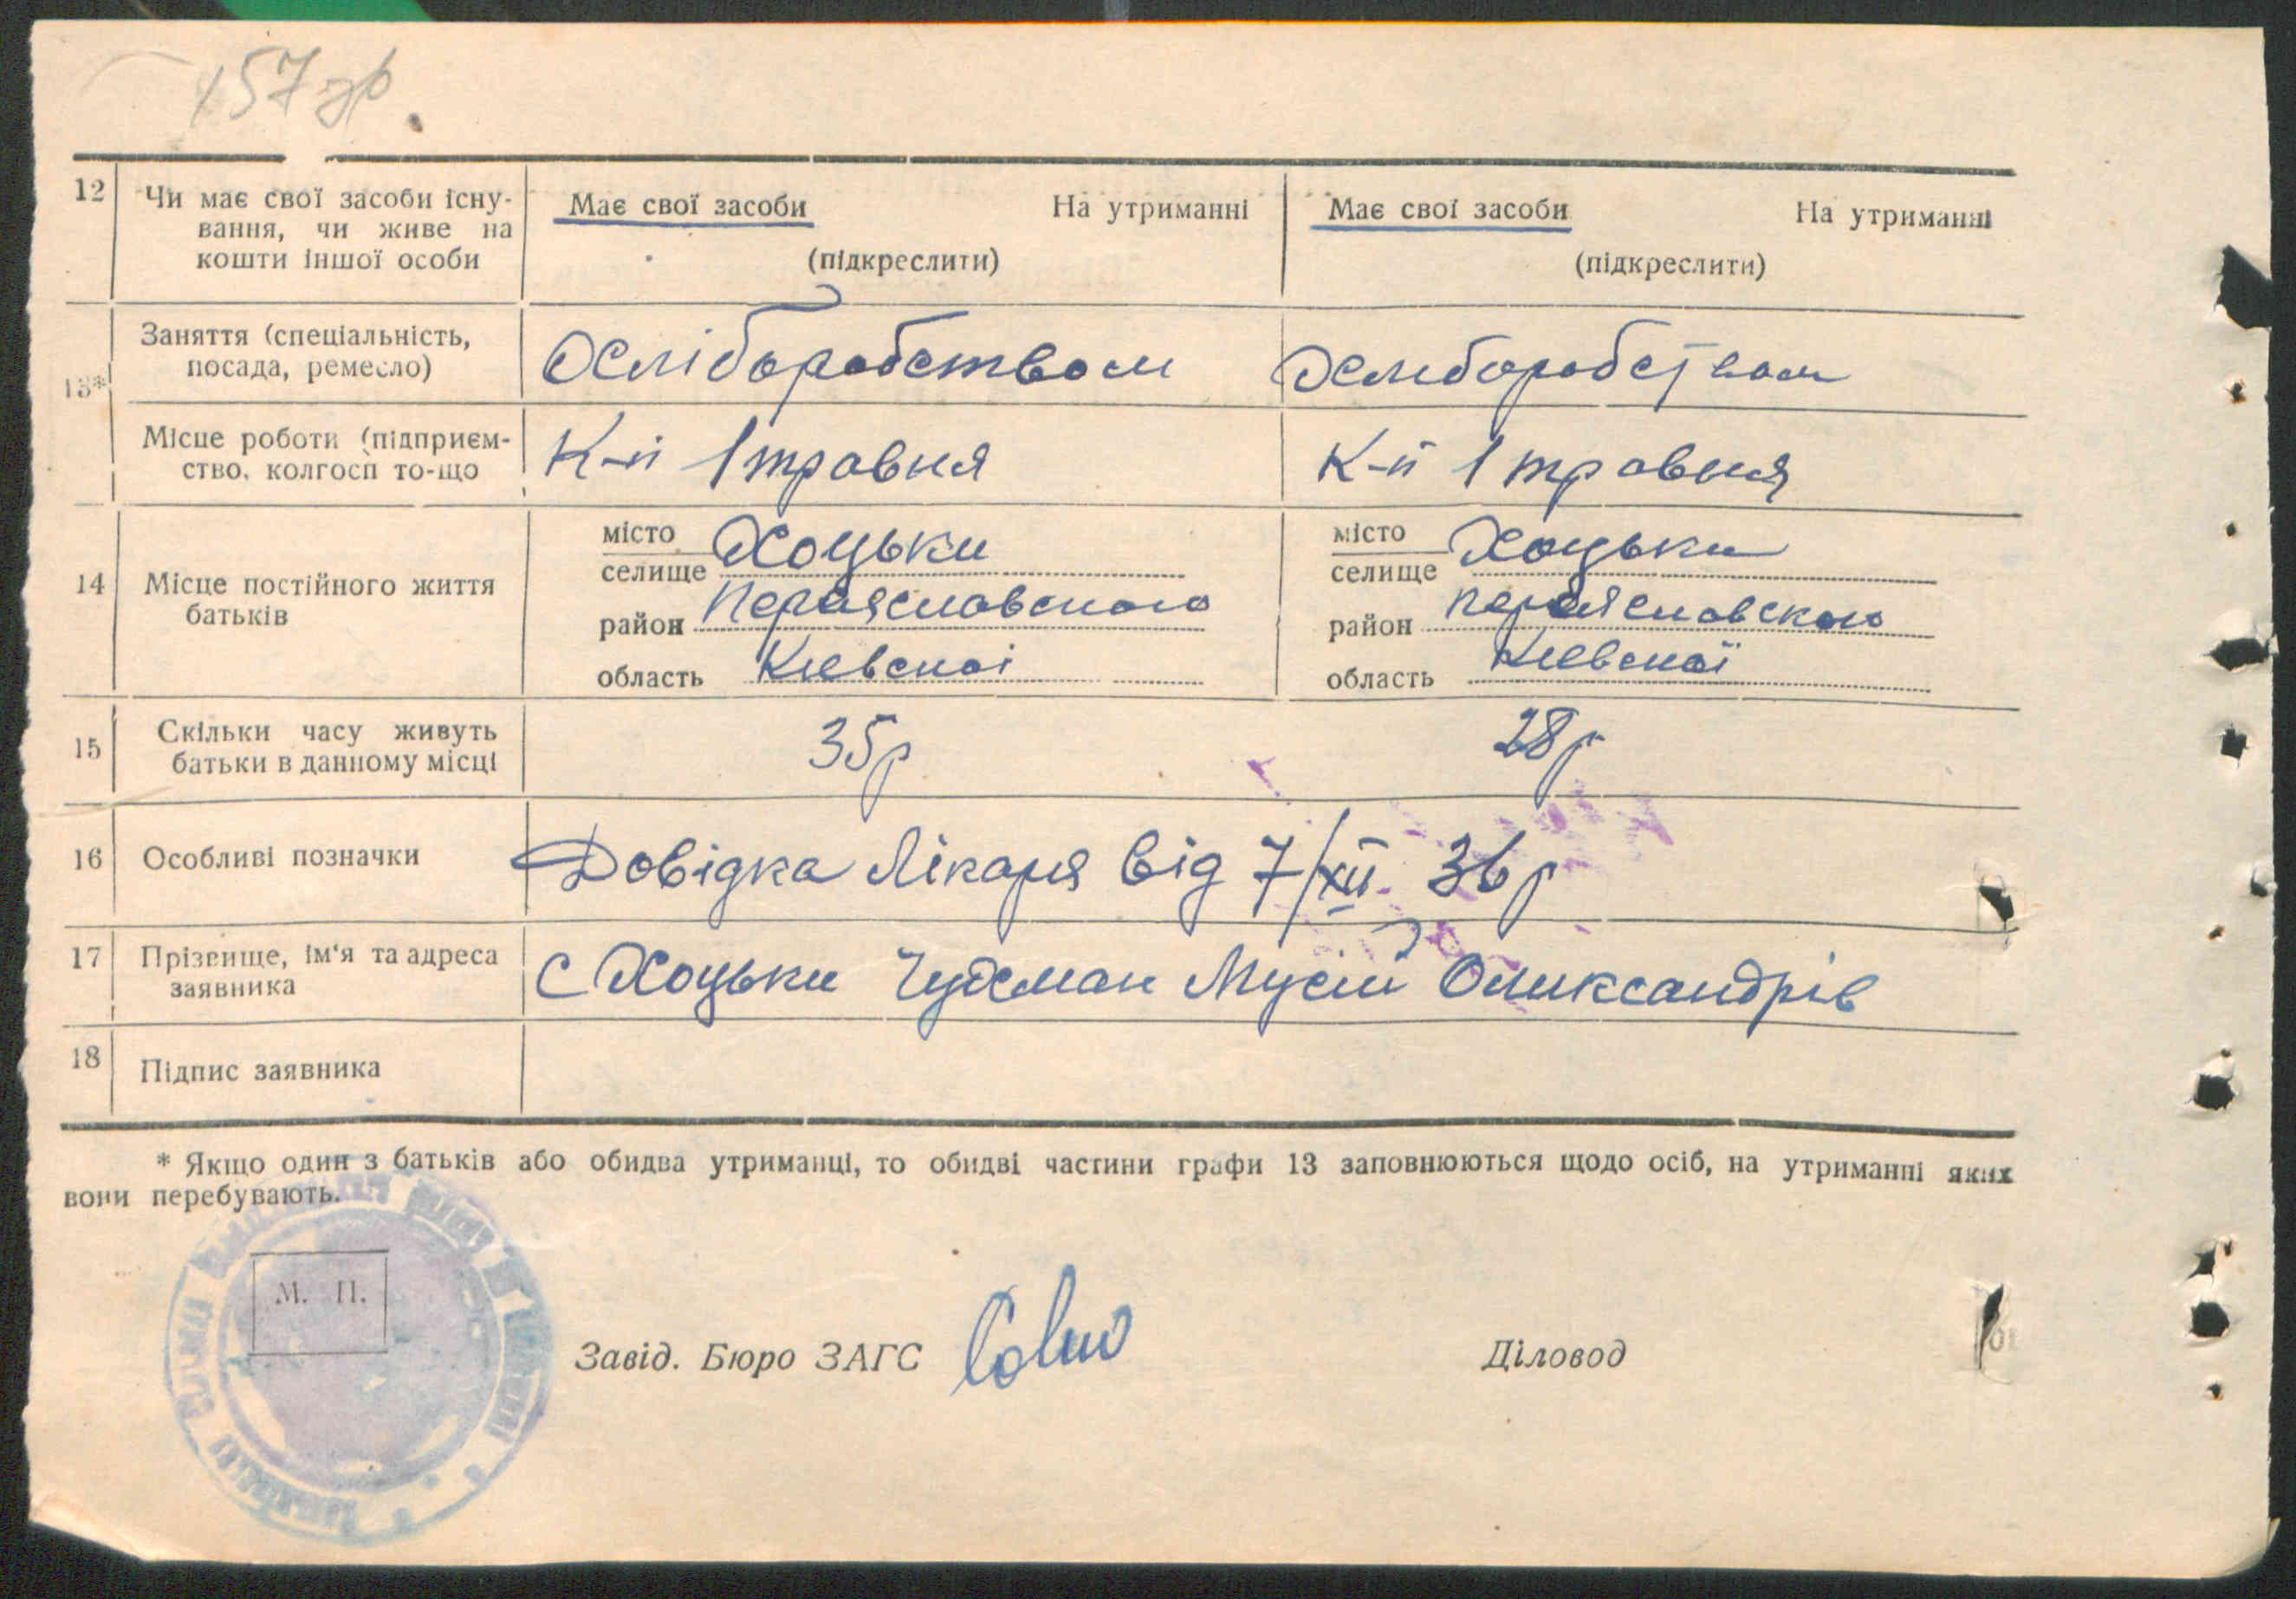 157 зв.
12 Чи має свої засоби існу- Має свої засоби На утриманні Має свої засоби На утриманні
вання, чи живе на
кошти іншої особи (підкреслити) (підкреслити)
Заняття (спеціальність,
посада, ремесло) Хліборобством Хлиборобством
13*
Місце роботи (підприєм- К-п 1 травня К-п 1 травня
ство, колгосп то-що
місто Хоцьки місто Хоцьки
селище селище
14 Місце постійного життя
батьків район Переясловского район Переясловского
область Киевскої область Киевскої
15 Скільки часу живуть 35р 28р
батьки в данному місці
16 Особливі позначки Довідка Лікаря від 7/XII 36р
17 Прізвище, ім'я та адреса с Хоцьки Мусій Олиександрів
заявника
18 Підпис заявника
* Якщо один з батьків або обидва утриманці, то обидві частини графи 13 заповнюються щодо осіб, на утриманні яких
вони перебувають.
М. П.
Завід. Бюро ЗАГС Діловод